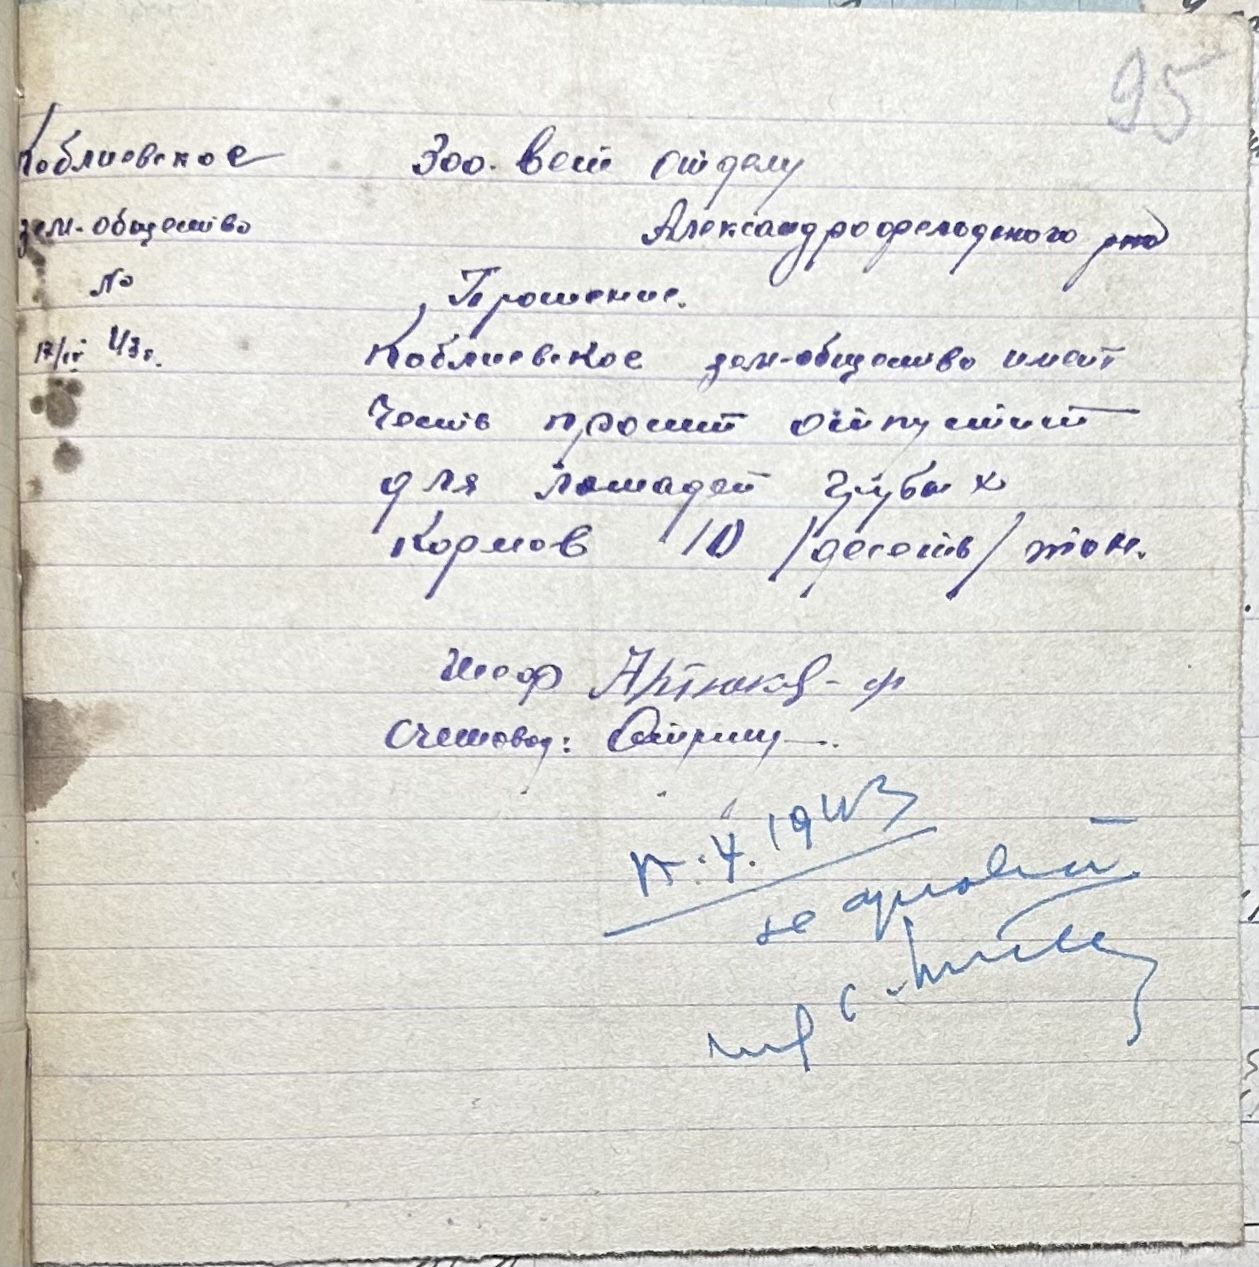 95
Коблиевское
зем-общество
№
17/IV 43г.
Зоо. вет отделу
Александрофельдского
Прошение.
Коблиевское зем-общество имеет
честь просит отпустит
для лошадей грубых
кормов 10 /десеть/ тон.
Шеф
Счетовод:
4. 1943